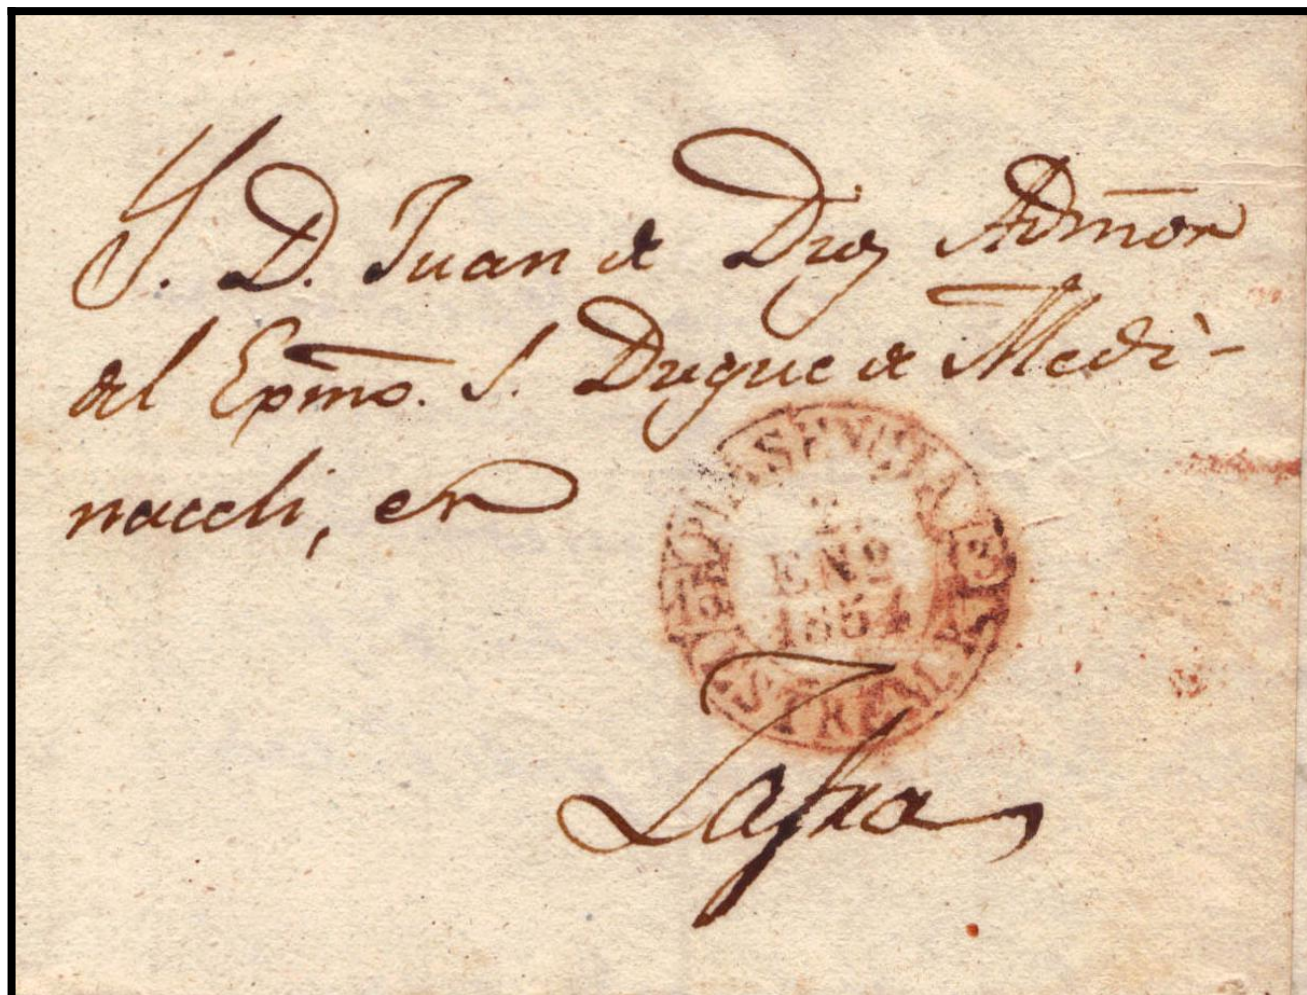 S. D. Juan de Dios Admōr
del Exmo. S. Duque de Medi-
naceli, en
ENº
1854
Zafra